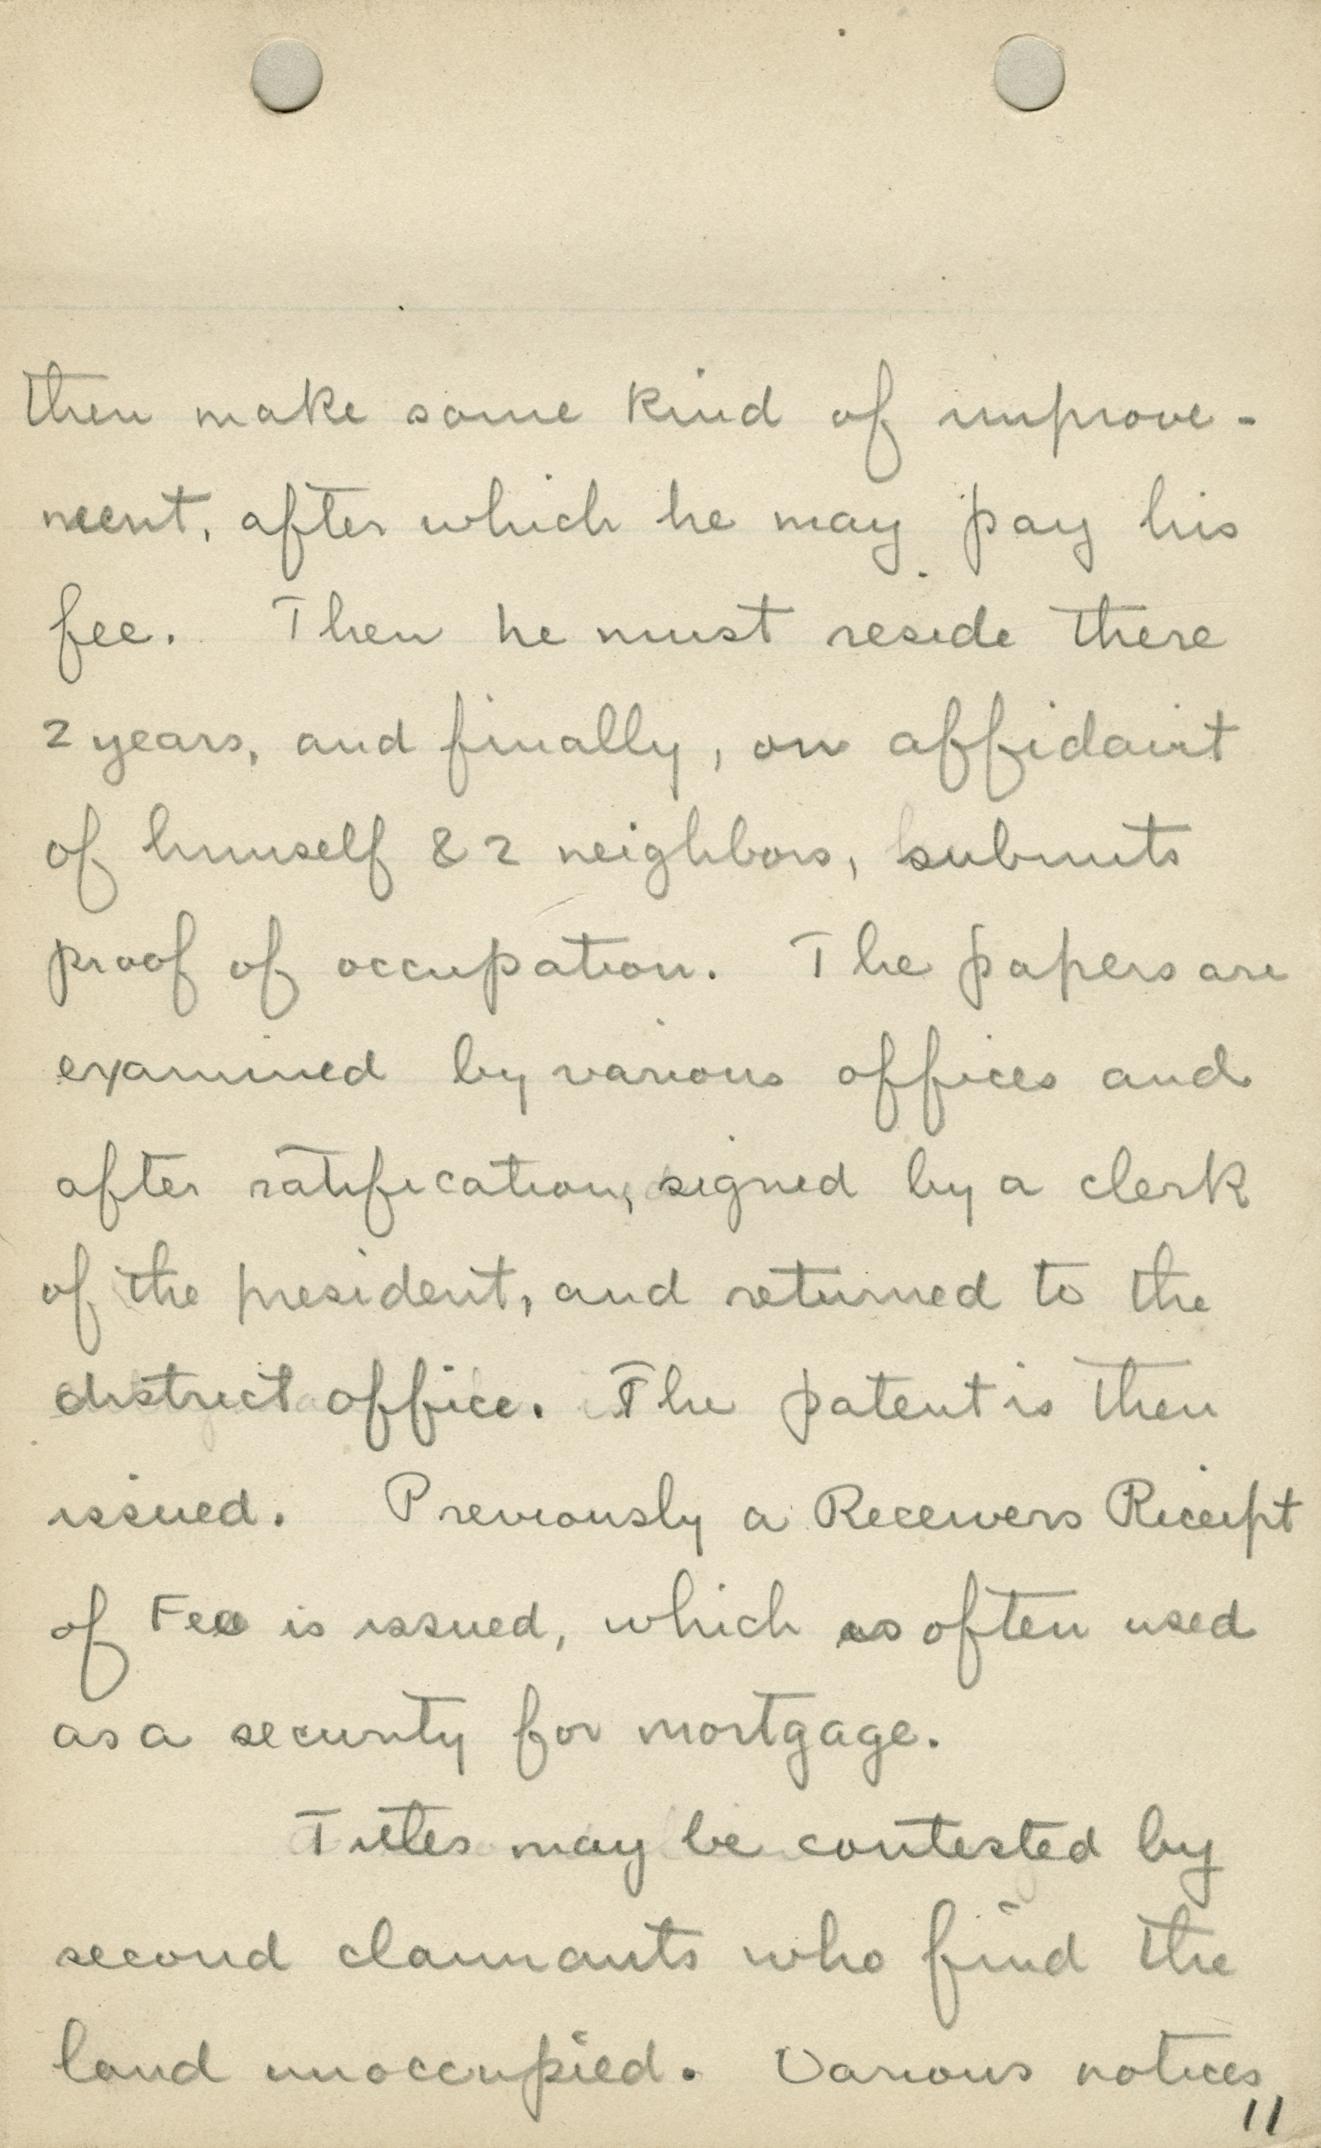 then make some kind of improve-
ment, after which he may pay his
fee. Then he must reside there
2 years, and finally, on affidavit
of himself & 2 neighbors, submits
proof of occupation. The papers are
examined by various offices and
after ratification, signed by a clerk
of the president, and returned to the
district office. The patent is then
issued. Previously a Receivers Receipt
of Fee is issued, which is often used
as a security for mortgage.
Titles may be contested by
second claimants who find the
land unoccupied. Various notices
11